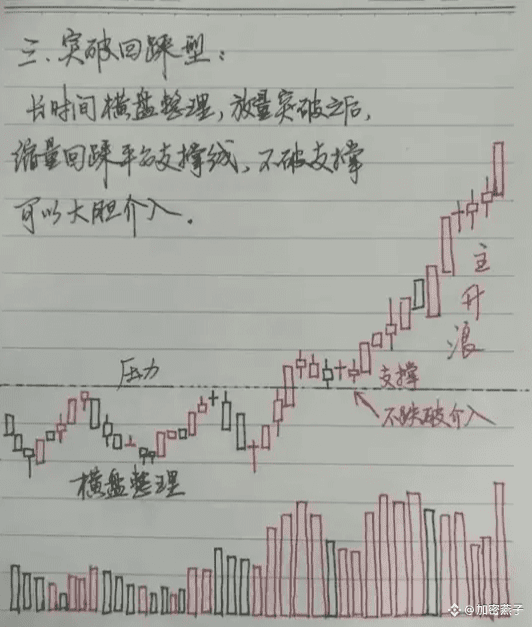 三、突破回踩型：
长时间横盘整理，放量突破之后，
缩量回踩平台支撑线，不破支撑
可以大胆介入．
主升浪
压力
支撑
不跌破介入
横盘整理
@加密燕子